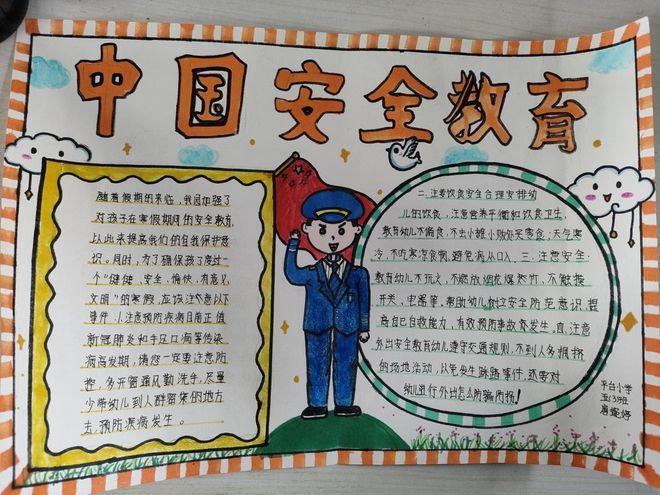 中国安全教育
随着假期的来临，我园加强了
对孩子在寒假期间的安全教育，
以此来提高我们的自我保护意
识。同时，为了确保孩子度过一
个“健健、安全、愉快、有意义、
文明”的寒假，应该注意以下
事件：1.注意预防疾病目前正值
新冠肺炎和手足口病等传染
病高发期，请您一定要注意防
控，多开窗通风勤洗手，尽量
少带幼儿到人群密集的地方
去，预防疾病发生。
二、注意饮食安全合理安排幼
儿的饮食，注意营养平衡和饮食卫生，
教育幼儿不偏食，不去小摊小贩处买零食；天气寒
冷，不吃寒凉食物，避免病从口入。三、注意安全：
教育幼儿不玩火，不燃放烟花爆竹，不触摸
开关、电器等，帮助幼儿树立安全防范意识，提
高自己自救能力，有效预防事故发生，四、注意
外出安全教育幼儿遵守交通规则，不到人多拥挤
的场地活动，以免发生踩踏事件，还要对
幼儿进行外出怎么防骗防拐！
平台小学
五(3)班